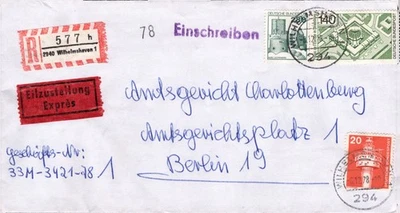 R 577 h
2940 Wilhelmshaven 1
78 Einschreiben
140
294
Eilzustellung
Exprès
Amtsgericht Charlottenburg
Amtsgerichtsplatz 1
Berlin 19
Geschäfts-Nr:
33M-3421-78/1
20
294